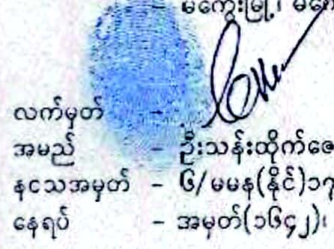 မကွေးမြို့၊
လက်မှတ် -
အမည် - ဦးသန်းထိုက်ဇေ
နငသအမှတ် - ၆/မမန(နိုင်)၁၇
နေရပ် - အမှတ်(၁၆၄၂)၊